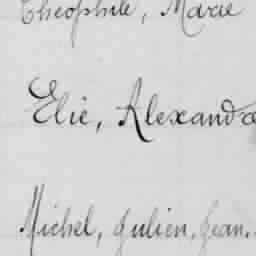 Théophile, Marie
Elie, Alexandre
Michel, Julien, Jean.